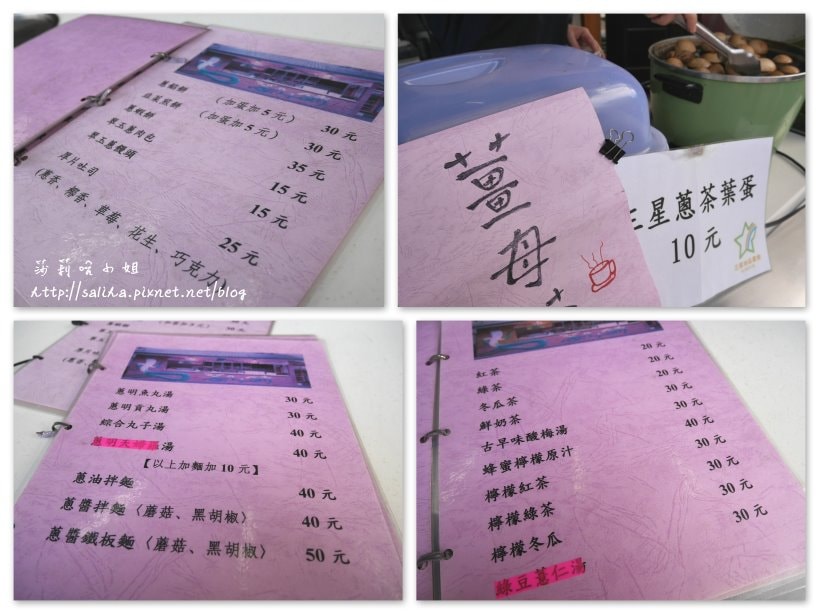 蔥餡餅 (加蛋加5元) 30元
韭菜煎餅 (加蛋加5元) 30元
蔥蝦餅 35元
翠玉蔥肉包 15元
翠玉蔥饅頭 15元
厚片吐司 25元
(蔥香、椰香、草莓、花生、巧克力)
莎莉哈小姐
http://saliha.pixnet.net/blog
薑母
三星蔥茶葉蛋
10元
蔥明魚丸湯 30元
蔥明貢丸湯 30元
綜合丸子湯 40元
湯 40元
【以上加麵加10元】
蔥油拌麵 40元
蔥醬拌麵〈蘑菇、黑胡椒〉 40元
蔥醬鐵板麵〈蘑菇、黑胡椒〉 50元
紅茶 20元
綠茶 20元
冬瓜茶 20元
鮮奶茶 30元
古早味酸梅湯 30元
蜂蜜檸檬原汁 40元
檸檬紅茶 30元
檸檬綠茶 30元
檸檬冬瓜 30元
綠豆薏仁湯 30元